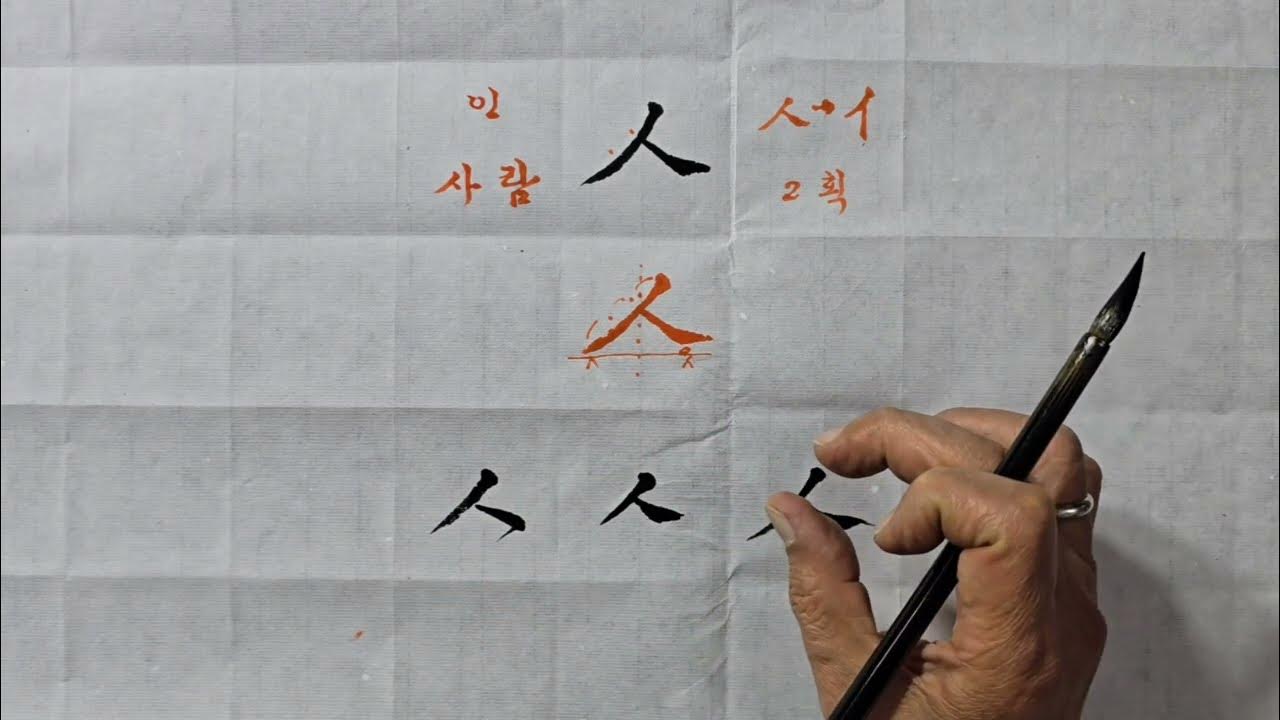 인 人 人→亻
사람 2획
人
人 人 人